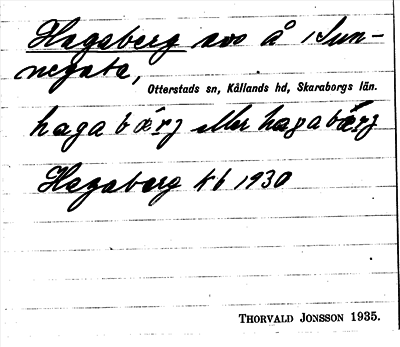 Hagaberg avs å Sun-
negata,
Otterstads sn, Kållands hd, Skaraborgs län.
hagabærj eller hagabærj
Hagaberg kb 1930
THORVALD JONSSON 1935.